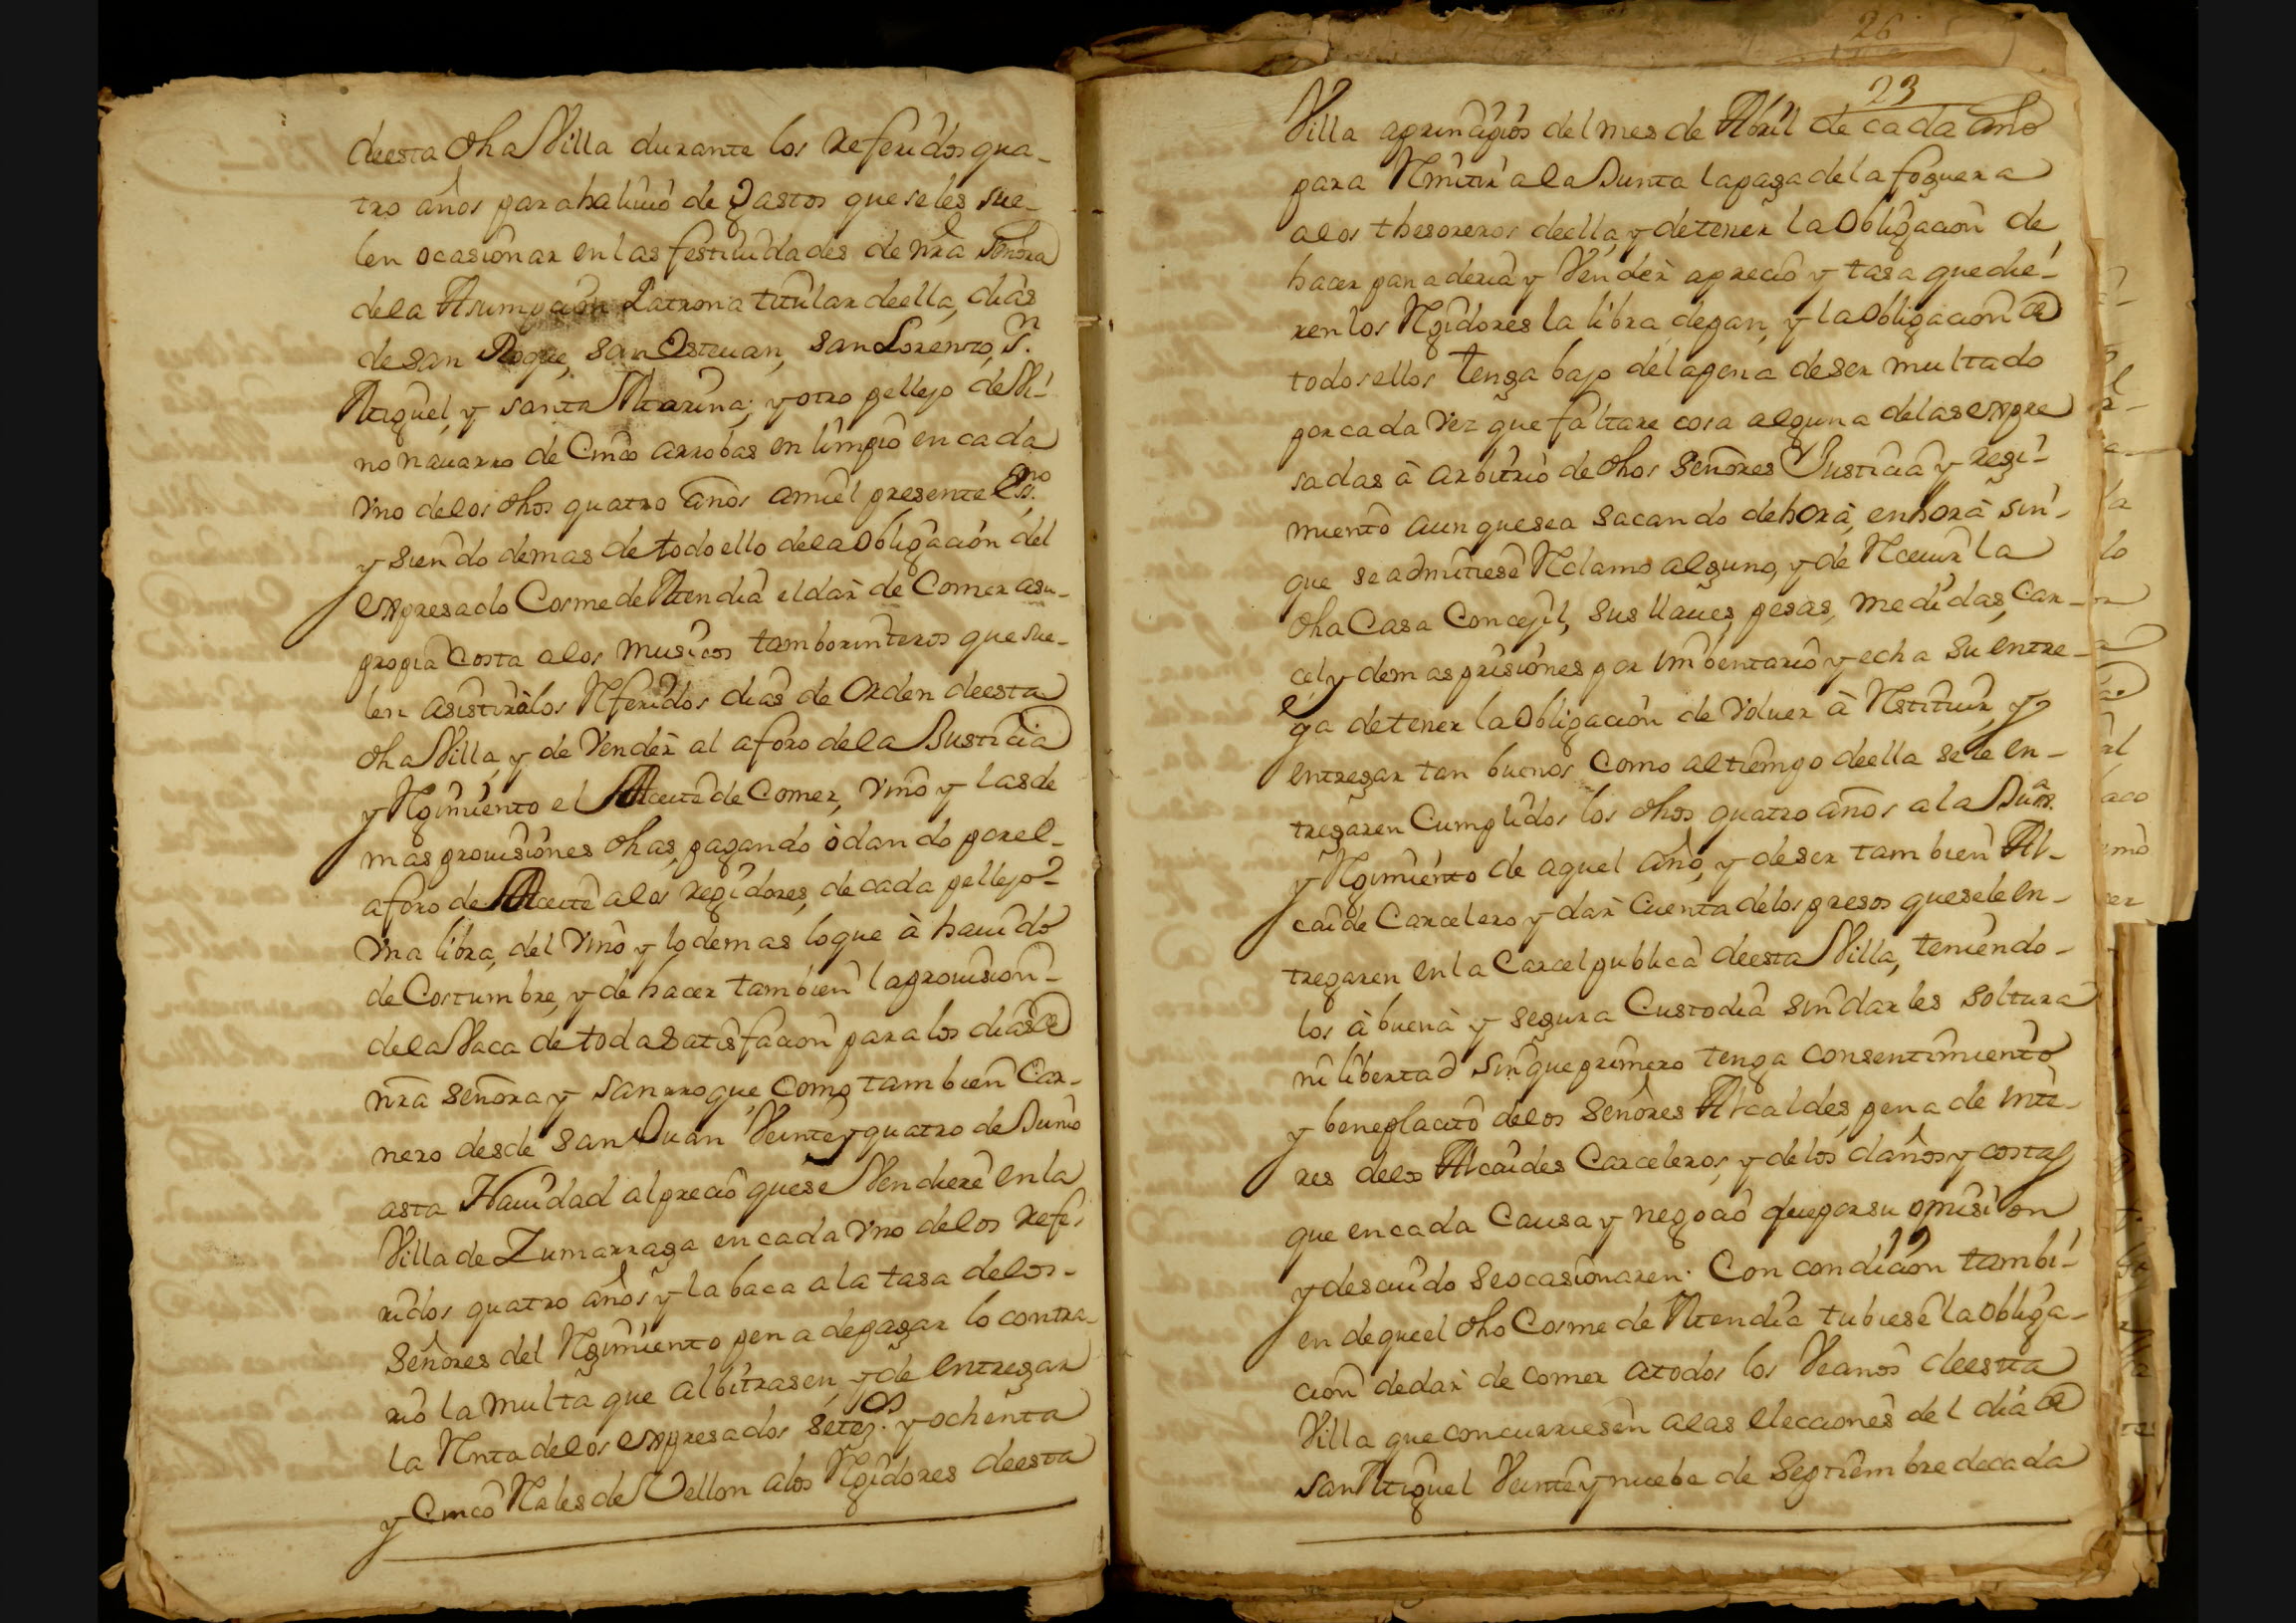 deesta dha Villa durante los referidos qua-
tro años para halivio de gastos que seles sue-
len ocasionar en las festividades de nra Señora
dela Asumpcion Patrona titular deella, dias
de san Roque, san Estevan, san Lorenzo, Sn.
Miguel, y santa Marina; y otro pellejo de Vi-
no navarro de Cinco arrobas en limpio en cada
vno delos dhos quatro años amiel presente Essno.
y siendo demas de todo ello dela Obligacion del
expresado Cosme de Mendia el dar de Comer asu-
propia Costa alos musicos tamborinteros que sue-
len asistir a los Referidos dias de Orden deesta
dha Villa, y de Vender al aforo dela Justicia
y Regimiento el Aceite de Comer, vino y las de
mas provisiones dhas, pagando ò dando por el-
aforo de Aceite alos regidores, de cada pellejo-
vna libra, del vino y lo demas lo que à havido
de Costumbre, y de hacer tambien la provision-
dela Vaca de toda satisfacion para los dias de
nra señora y san rroque, Como tambien Car-
nero desde san Juan Veinte y quatro de Junio
asta Navidad al precio que se Vendiere en la
Villa de Zumarraga en cada vno delos refe-
ridos quatro años y la baca a la tasa delos-
Señores del Regimiento pena depagar lo contra-
rio la multa que albitrasen, y de entregar
la Renta delos expresados setezos. y ochenta
y Cinco Reales de Vellon alos Regidores deesta
26
23
Villa aprincipios del mes de Abril de cada año
para Remitir ala Junta la paga dela foguera
alos thesoreros deella, y detener la Obligacion de
hacer panaderia y Vender aprecio y tasa que die-
ren los Regidores la libra depan, y la Obligacion de
todos ellos tenga bajo dela pena deser multado
por cada vez que faltare cosa alguna delas expre
sadas à arbitrio de dhos señores Justicia y regi-
miento aunque sea sacando dehorà, enhorà sin-
que se admitiese Reclamo alguno, y de Recivir la
dha Casa Concejil, sus llaves, pesas, medidas, Car-
cel y demas prisiones por imbentario y echa su entre-
ga detener la Obligacion de volver à Restituir, y
entregar tan buenos Como altiempo deella se le en-
tregaren Cumplidos los dhos quatro años a la Jusa.
y Regimiento de aquel año, y deser tambien Al-
caide Carcelero y dar Cuenta delos presos quesele en-
tregaren en la Carcel publica deesta Villa, teniendo-
los à buena y segura Custodia sin darles soltura
ni libertad sin que primero tenga consentimiento
y beneplacito delos señores Alcaldes, pena de inte-
res delos Alcaides Carceleros, y delos daños y costas
que en cada Causa y negocio que por su omision
y descuido se ocasionaren. Con condicion tambi-
en de que el dho Cosme de Mendia tubiese la Obliga-
cion dedar de comer atodos los Vecinos deesta
Villa que concurriesen alas Elecciones del dia de
san Miguel Veinte y nuebe de septiembre decada